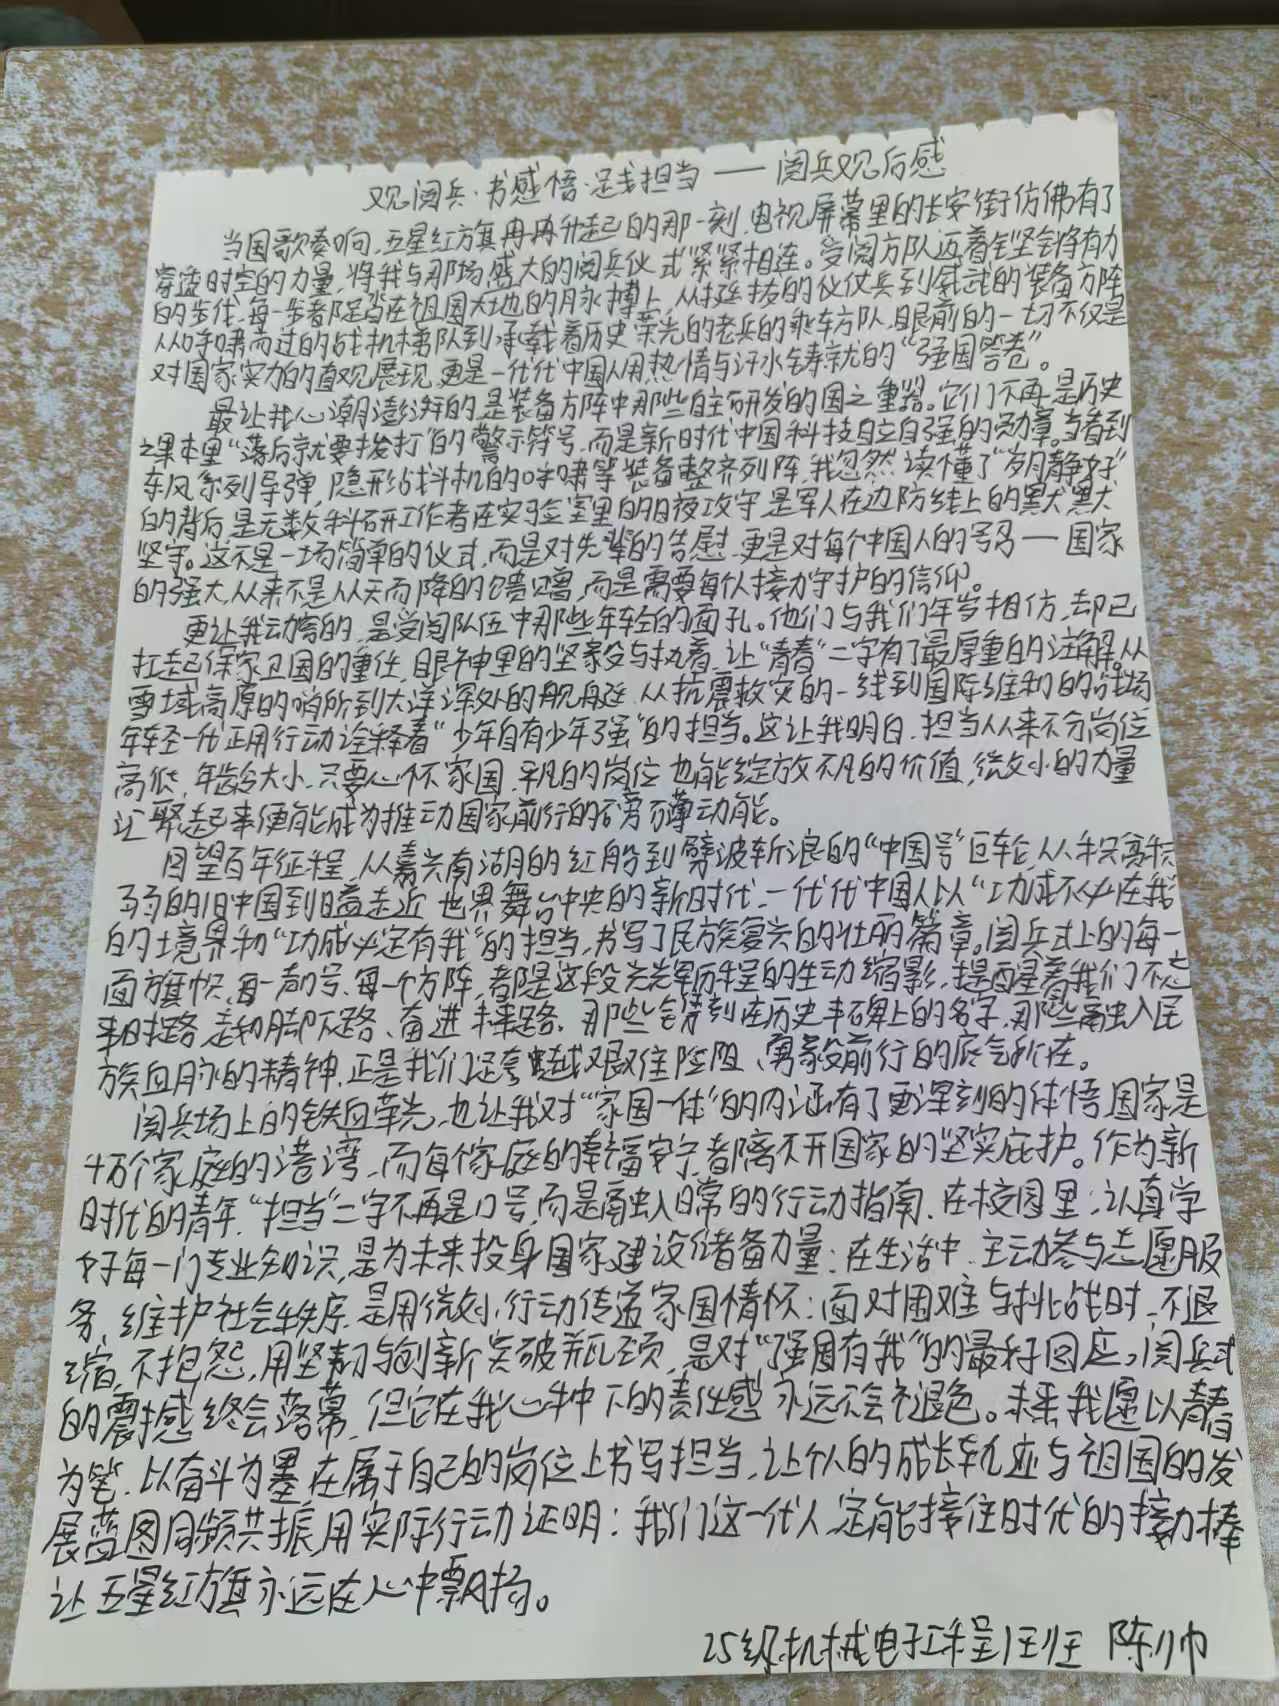 观阅兵·书感悟·践担当——阅兵观后感
当国歌奏响,五星红旗冉冉升起的那一刻,电视屏幕里的长安街仿佛有了
穿透时空的力量,将我与那场盛大的阅兵仪式紧紧相连。受阅方队迈着铿锵有力
的步伐,每一步都踏在祖国大地的脉搏上,从挺拔的仪仗兵到威武的装备方阵
从呼啸而过的战机梯队到承载着历史荣光的老兵的乘车方队,眼前的一切不仅是
对国家实力的直观展现,更是一代代中国人用热情与汗水铸就的“强国答卷”。
最让我心潮澎湃的,是装备方阵中那些自主研发的国之重器。它们不再是历史
课本里“落后就要挨打”的警示符号,而是新时代中国科技自立自强的勋章。当看到
东风系列导弹,隐形战斗机的呼啸等装备整齐列阵,我忽然读懂了“岁月静好”
的背后,是无数科研工作者在实验室里的日夜攻守,是军人在边防线上的默默
坚守。这不是一场简单的仪式,而是对先辈的告慰,更是对每个中国人的号召——国家
的强大,从来不是从天而降的馈赠,而是需要每个人接力守护的信仰。
更让我动容的,是受阅队伍中那些年轻的面孔。他们与我们年岁相仿,却已
扛起保家卫国的重任,眼神里的坚毅与执着,让“青春”二字有了最厚重的注解。从
雪域高原的哨所到大洋深处的舰艇,从抗震救灾的一线到国际维和的战场
年轻一代正用行动诠释着“少年自有少年强”的担当。这让我明白,担当从来不分岗位
高低,年龄大小,只要心怀家国,平凡的岗位也能绽放不凡的价值,微小的力量
汇聚起来便能成为推动国家前行的磅礴动能。
回望百年征程,从嘉兴南湖的红船到劈波斩浪的“中国号”巨轮,从积贫积
弱的旧中国到日益走近世界舞台中央的新时代,一代代中国人以“功成不必在我
的境界和“功成必定有我”的担当,书写了民族复兴的壮丽篇章。阅兵式上的每一
面旗帜,每一声口号,每一个方阵,都是这段光辉历程的生动缩影,提醒着我们不忘
来时路,走好脚下路、奋进未来路,那些镌刻在历史丰碑上的名字,那些融入民
族血脉的精神,正是我们跨越艰难险阻、勇毅前行的底气所在。
阅兵场上的铁血荣光,也让我对“家国一体”的内涵有了更深刻的体悟,国家是
千万个家庭的港湾,而每个家庭的幸福安宁,都离不开国家的坚实庇护。作为新
时代的青年,“担当”二字不再是口号,而是融入日常的行动指南,在校园里:认真学
好每一门专业知识,是为未来投身国家建设储备力量:在生活中,主动参与志愿服
务,维护社会秩序,是用微小行动传递家国情怀:面对困难与挑战时,不退
缩,不抱怨,用坚韧与创新突破瓶颈,是对“强国有我”的最好回应,阅兵式
的震撼终会落幕,但它在我心中种下的责任感永远不会褪色。未来我愿以青春
为笔,以奋斗为墨,在属于自己的岗位上书写担当,让个人的成长轨迹与祖国的发
展蓝图同频共振,用实际行动证明:我们这一代人,定能接住时代的接力棒
让五星红旗永远在心中飘扬。
25级机械电子工程1班 陈帅